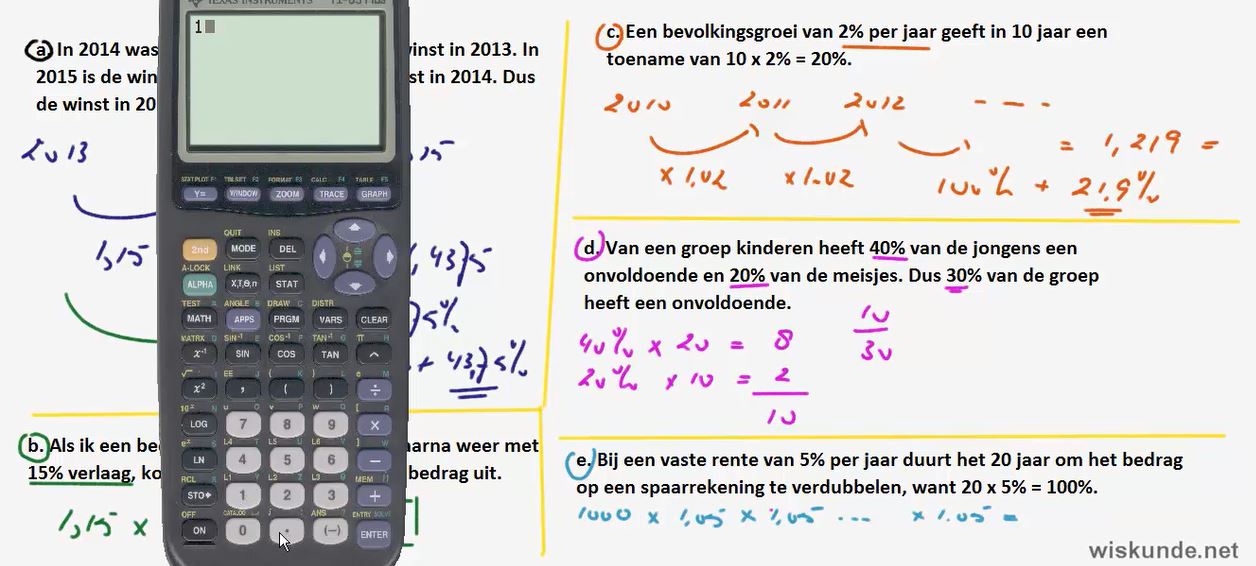 TEXAS INSTRUMENTS TI-83 Plus
1
a. In 2014 was
winst in 2013. In
2015 is de win
st in 2014. Dus
de winst in 20
2013
,15
1,15
,4375
75%
+ 43,75%
b. Als ik een be
aarna weer met
15% verlaag, ko
bedrag uit.
1,15 x
STAT PLOT F1 TBLSET F2 FORMAT F3 CALC F4 TABLE F5
Y= WINDOW ZOOM TRACE GRAPH
QUIT INS
2nd MODE DEL
A-LOCK LINK LIST
ALPHA X,T,θ,n STAT
TEST A ANGLE B DRAW C DISTR
MATH APPS PRGM VARS CLEAR
MATRX D SIN⁻¹ E COS⁻¹ F TAN⁻¹ G π H
x⁻¹ SIN COS TAN ^
√ I EE J { K } L e M
x² , ( ) ÷
10ˣ N u O v P w Q [ R
LOG 7 8 9 ×
eˣ S L4 T L5 U L6 V ] W
LN 4 5 6 −
RCL X L1 Y L2 Z L3 θ MEM "
STO▸ 1 2 3 +
OFF CATALOG i ANS ? ENTRY SOLVE
ON 0 . (−) ENTER
c. Een bevolkingsgroei van 2% per jaar geeft in 10 jaar een
toename van 10 x 2% = 20%.
2010 2011 2012 - - -
= 1,219 =
x 1.02 x 1.02 100% + 21.9%
d. Van een groep kinderen heeft 40% van de jongens een
onvoldoende en 20% van de meisjes. Dus 30% van de groep
heeft een onvoldoende.
10
40% x 20 = 8
30
20% x 10 = 2
10
e. Bij een vaste rente van 5% per jaar duurt het 20 jaar om het bedrag
op een spaarrekening te verdubbelen, want 20 x 5% = 100%.
1000 x 1,05 x 1,05 ... x 1.05 =
wiskunde.net